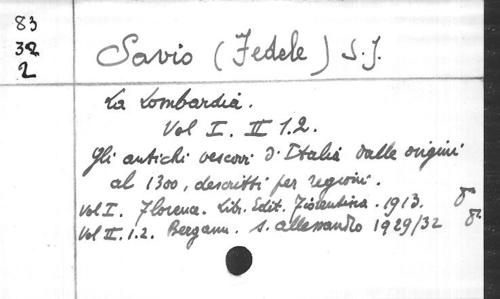 83
32
2
Savio (Fedele) S.J.
La Lombardia.
Vol I. II 1.2.
Gli antichi vescovi d'Italia dalle origini
al 1300, descritti per regioni.
Vol I. Florence. Libr. Edit. Fiorentina. 1913. 8
Vol II. 1.2. Bergam. S. Alessandro 1929/32 8º